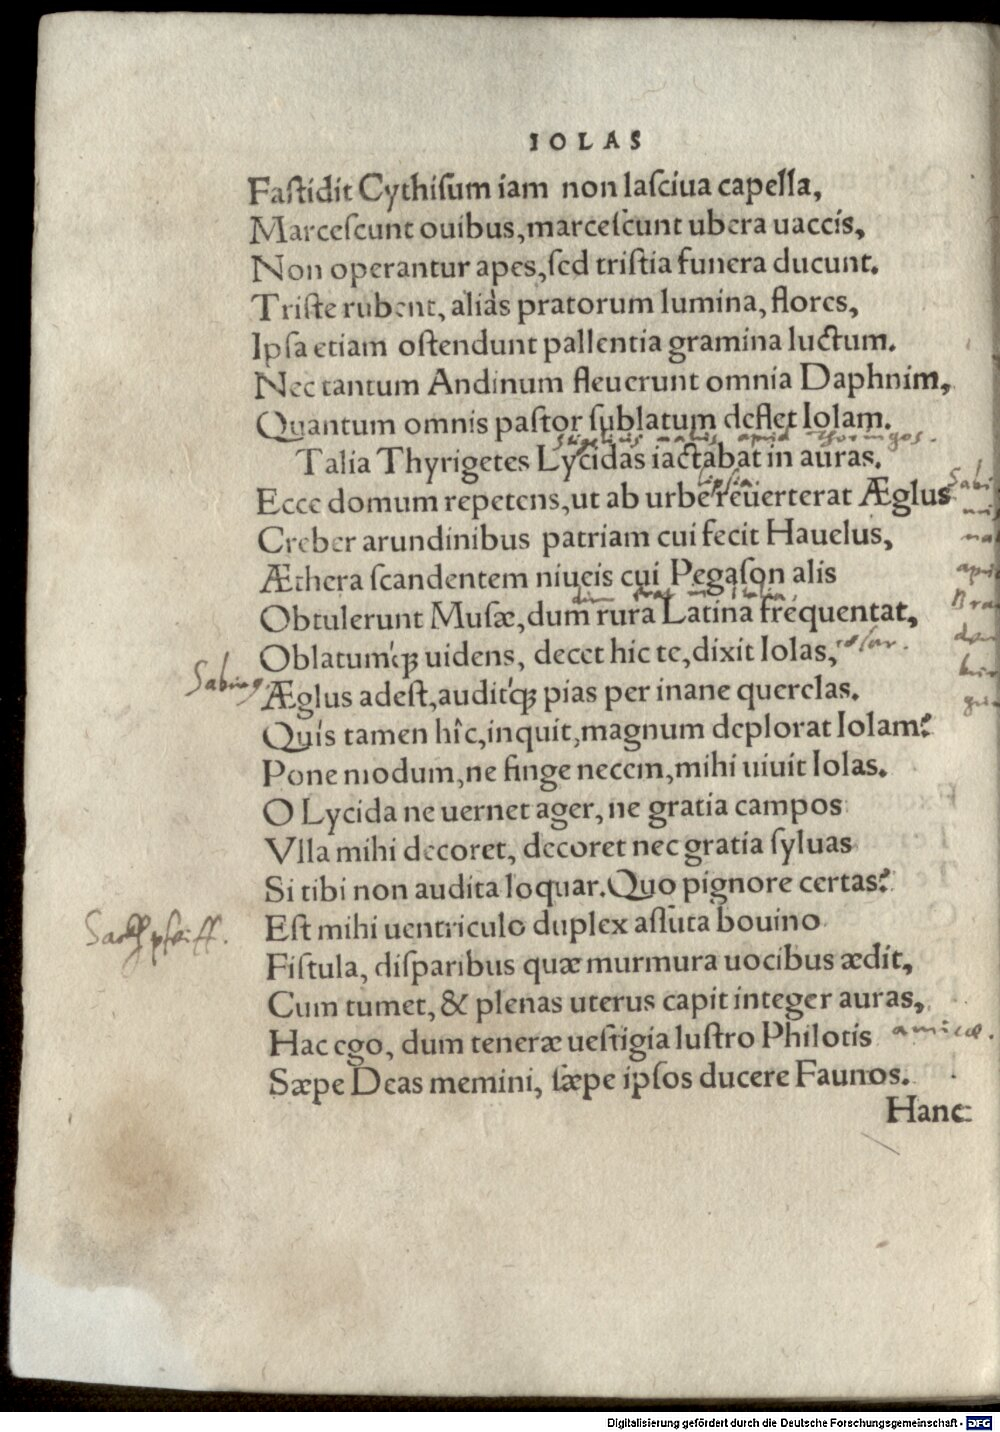 IOLAS
Faſtidit Cythiſum iam non laſciua capella,
Marceſcunt ouibus, marceſcunt ubera uaccis,
Non operantur apes, ſed triſtia funera ducunt.
Triſte rubent, aliàs pratorum lumina, flores,
Ipſa etiam oſtendunt pallentia gramina luctum.
Nec tantum Andinum fleuerunt omnia Daphnim,
Quantum omnis paſtor ſublatum deflet Iolam.
natus apud Thoringos.
Talia Thyrigetes Lycidas iactabat in auras.
lipſia.
Ecce domum repetens, ut ab urbe reuerterat Æglus
Sabi
nus
na
apud
Bra
den
bur
Creber arundinibus patriam cui fecit Hauelus,
Æthera ſcandentem niueis cui Pegaſon alis
dum erat in Italia.
Obtulerunt Muſæ, dum rura Latina frequentat,
Oblatum´q; uidens, decet hic te, dixit Iolas,
Sabinus
Æglus adeſt, audit´q; pias per inane querelas.
Quis tamen hîc, inquit, magnum deplorat Iolam?
Pone modum, ne finge necem, mihi uiuit Iolas.
O Lycida ne uernet ager, ne gratia campos
Vlla mihi decoret, decoret nec gratia ſyluas
Si tibi non audita loquar. Quo pignore certas?
Eſt mihi uentriculo duplex aſſuta bouino
Sackpfeiff.
Fiſtula, diſparibus quæ murmura uocibus ædit,
Cum tumet, & plenas uterus capit integer auras,
Hac ego, dum teneræ ueſtigia luſtro Philotis amicæ.
Sæpe Deas memini, ſæpe ipſos ducere Faunos.
Hanc
Digitalisierung gefördert durch die Deutsche Forschungsgemeinschaft - DFG